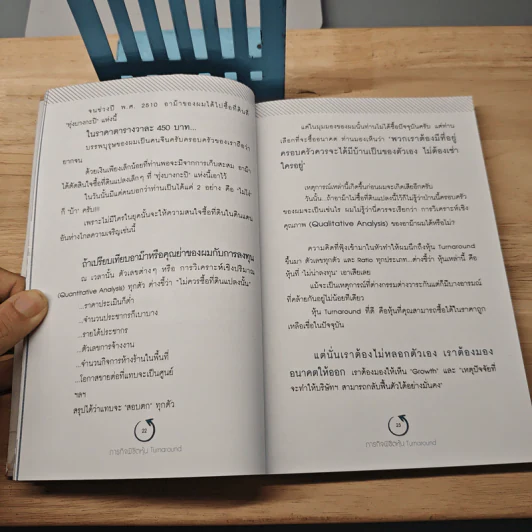 จนช่วงปี พ.ศ. 2510 อาม้าของผมได้ไปซื้อที่ดินที่
'ทุ่งบางกะปิ' แห่งนี้
ในราคาตารางวาละ 450 บาท...
บรรพบุรุษของผมเป็นคนจีนครับครอบครัวของเราถือว่า
ยากจน
ด้วยเงินเพียงเล็กน้อยที่ท่านพอจะมีจากการเก็บสะสม อาม้า
ได้ตัดสินใจซื้อที่ดินแปลงเล็กๆ ที่ 'ทุ่งบางกะปิ' แห่งนี้เอาไว้
ในวันนั้นมีแต่คนบอกว่าท่านเป็นได้แค่ 2 อย่าง คือ 'ไม่โง่
ก็ 'บ้า' ครับ!!!
เพราะไม่มีใครในยุคนั้นจะให้ความสนใจซื้อที่ดินในดินแดน
อันห่างไกลความเจริญเช่นนี้
ถ้าเปรียบเทียบอาม้าหรือคุณย่าของผมกับการลงทุน
ณ เวลานั้น ตัวเลขต่างๆ หรือ การวิเคราะห์เชิงปริมาณ
(Quantitative Analysis) ทุกตัว ต่างชี้ว่า "ไม่ควรซื้อที่ดินแปลงนั้น"
...ราคาประเมินก็ต่ำ
...จำนวนประชากรก็เบาบาง
...รายได้ประชากร
...ตัวเลขการจ้างงาน
...จำนวนกิจการห้างร้านในพื้นที่
...โอกาสขายต่อที่แทบจะเป็นศูนย์
ฯลฯ
สรุปได้ว่าแทบจะ 'สอบตก' ทุกตัว
22
ภารกิจพิชิตหุ้น Turnaround
แต่ในมุมมองของผมนั้นท่านไม่ได้ซื้อปัจจุบันครับ แต่ท่าน
เลือกที่จะซื้ออนาคต ท่านมองเห็นว่า "พวกเราต้องมีที่อยู่
ครอบครัวควรจะได้มีบ้านเป็นของตัวเอง ไม่ต้องเช่า
ใครอยู่"
เหตุการณ์เหล่านี้เกิดขึ้นก่อนผมจะเกิดเสียอีกครับ
วันนั้น...ถ้าอาม้าไม่ซื้อที่ดินแปลงนี้ไว้ก็ไม่รู้ว่าป่านนี้ครอบครัว
ของผมจะเป็นเช่นไร ผมไม่รู้ว่านี่ควรจะเรียกว่า การวิเคราะห์เชิง
คุณภาพ (Qualitative Analysis) ของอาม้าผมได้หรือไม่?
ความคิดที่ฟุ้งเข้ามาในหัวทำให้ผมนึกถึงหุ้น Turnaround
ขึ้นมา ตัวเลขทุกตัว และ Ratio ทุกประเภท...ต่างชี้ว่า หุ้นเหล่านี้ คือ
หุ้นที่ 'ไม่น่าลงทุน' เอาเสียเลย
แม้จะเป็นเหตุการณ์ที่ต่างกรรมต่างวาระกันแต่ก็มีบางอารมณ์
ที่คล้ายกันอยู่ไม่น้อยทีเดียว
หุ้น Turnaround ที่ดี คือหุ้นที่คุณสามารถซื้อได้ในราคาถูก
เหลือเชื่อในปัจจุบัน
แต่นั่นเราต้องไม่หลอกตัวเอง เราต้องมอง
อนาคตให้ออก เราต้องมองให้เห็น 'Growth' และ "เหตุปัจจัยที่
จะทำให้บริษัทฯ สามารถกลับฟื้นตัวได้อย่างมั่นคง"
23
ภารกิจพิชิตหุ้น Turnaround